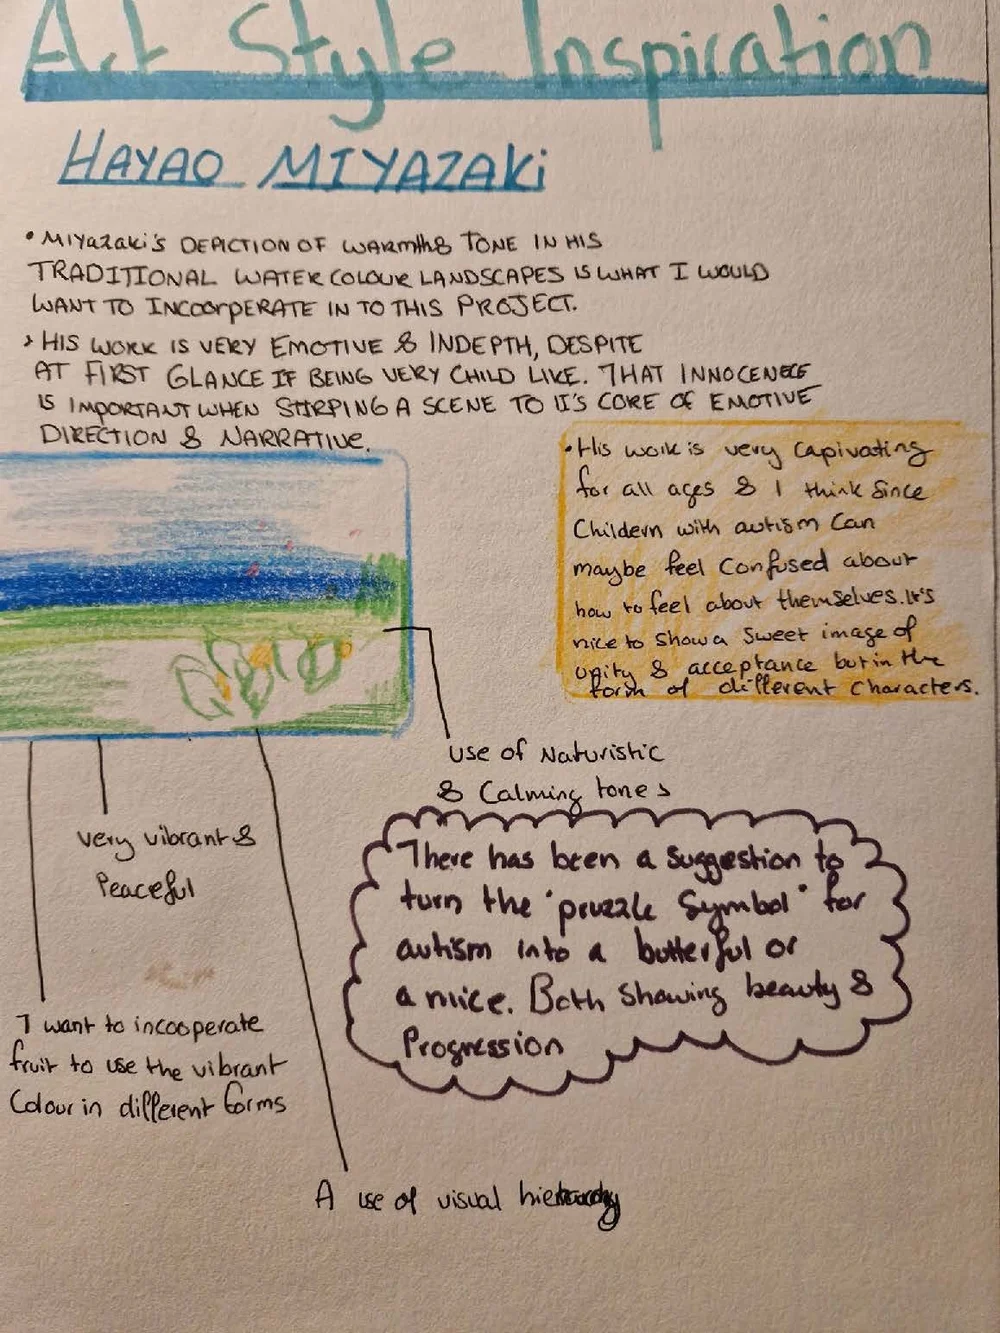 Art Style Inspiration
HAYAO MIYAZAKi
• MIYazaki's DEPICTION OF WARMTH & TONE IN HIS
TRADITIONAL WATER COLOUR LANDSCAPES IS WHAT I WOULD
WANT TO INCOORPERATE IN TO THIS PROJECT.
• HIS WORK IS VERY EMOTIVE & INDEPTH, DESPITE
AT FIRST GLANCE IF BEING VERY CHILD LIKE. THAT INNOCENCE
IS IMPORTANT WHEN STIRPING A SCENE TO IT'S CORE OF EMOTIVE
DIREKTION & NARRATIVE.
• His work is very Capivating
for all ages & I think Since
Childern with autism Can
maybe feel Confused about
how to feel about themselves. It's
nice to show a Sweet image of
unity & acceptance but in the
form of different Characters.
use of Naturistic
& Calming tones
very vibrant &
Peaceful
There has been a suggestion to
turn the 'pruzzle Symbol' for
autism into a butterful or
a mice. Both Showing beauty &
Progression
I want to incooperate
fruit to use the vibrant
Colour in different forms
A use of visual